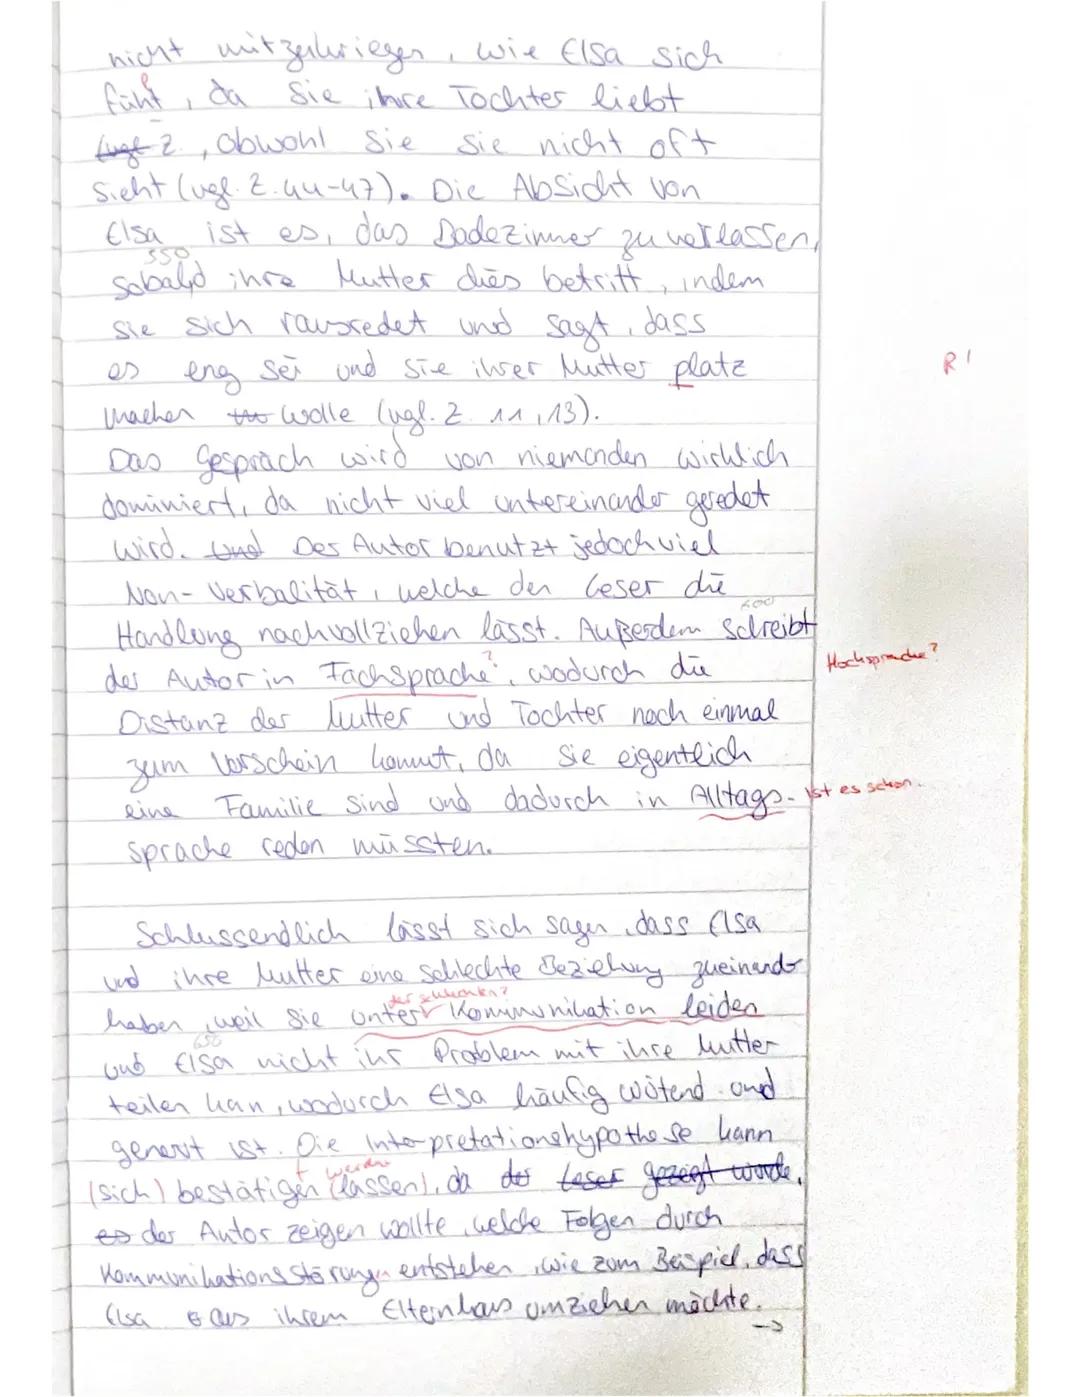 nicht mitzukriegen, wie Elsa sich
fühlt, da Sie ihre Tochter liebt
(vgl Z., obwohl Sie sie nicht oft
sieht (vgl. Z. 44-47). Die Absicht von
Elsa ist es, das Badezimmer zu verlassen,
550
sobald ihre Mutter dies betritt, indem
sie sich rausredet und sagt, dass
es eng sei und sie ihrer Mutter platz R!
machen wolle (vgl. Z. 11,13).
Das Gespräch wird von niemanden wirklich
dominiert, da nicht viel untereinander geredet
wird. Und Der Autor benutzt jedoch viel
Non-Verbalität, welche den Leser die
600
Handlung nachvollziehen lässt. Außerdem schreibt
der Autor in Fachsprache?, wodurch die Hochsprache?
Distanz der Mutter und Tochter noch einmal
zum Vorschein kommt, da sie eigentlich
eine Familie sind und dadurch in Alltags- ist es schon.
sprache reden müssten.
Schlussendlich lässt sich sagen, dass Elsa
und ihre Mutter eine schlechte Beziehung zueinander
der schlechten?
haben, weil Sie unter Kommunikation leiden
650
und Elsa nicht ihr Problem mit ihre Mutter
teilen kan, wodurch Elsa häufig wütend und
genervt ist. Die Interpretationshypothese kann
t werden
(sich) bestätigen (lassen), da der Leser gezeigt wurde,
es der Autor zeigen wollte, welche Folgen durch
Kommunikationsstörungen entstehen, wie zum Beispiel, dass
Elsa aus ihrem Elternhaus umziehen möchte.
→